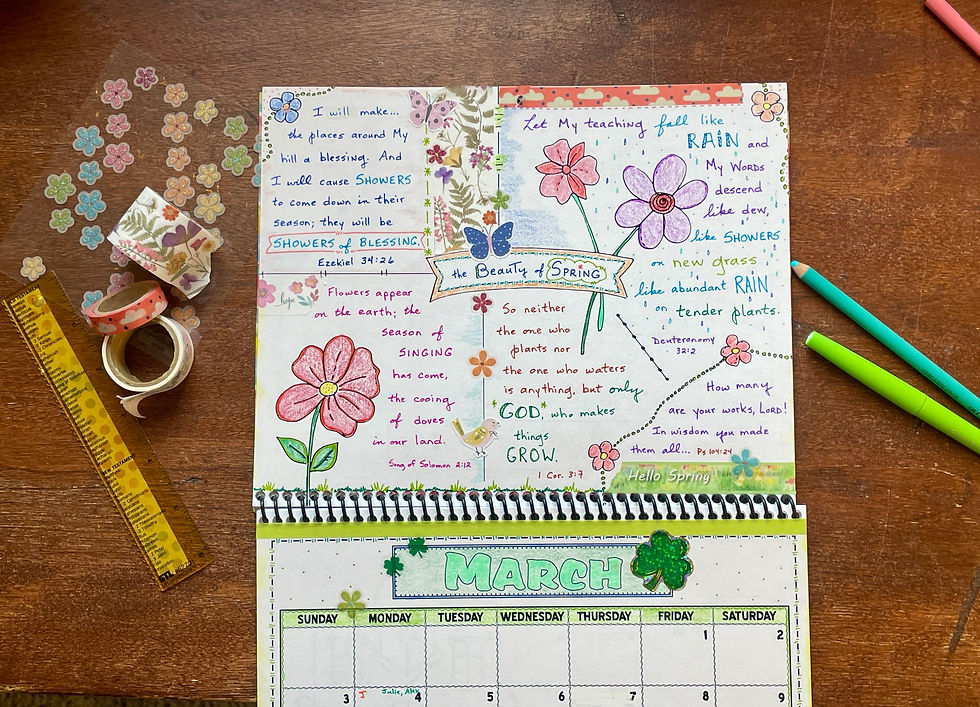 I will make...
the places around My
hill a blessing. And
I will cause SHOWERS
to come down in their
season; they will be
SHOWERS of BLESSING.
Ezekiel 34:26
Let My teaching fall like
RAIN and
My WORDS
descend
like dew,
like SHOWERS
on new grass
like abundant RAIN
on tender plants.
Deuteronomy
32:2
the Beauty of SPRING
hope
Flowers appear
on the earth; the
season of
SINGING
has come,
the cooing
of doves
in our land.
Song of Solomon 2:12
So neither
the one who
plants nor
the one who waters
is anything, but only
GOD, who makes
things
GROW.
1 Cor. 3:7
How many
are your works, LORD!
In wisdom you made
them all... Ps 104:24
Hello Spring
MARCH
SUNDAY MONDAY TUESDAY WEDNESDAY THURSDAY FRIDAY SATURDAY
1 2
J Julie, Alex
3 4 5 6 7 8 9
NEW TESTAMENT